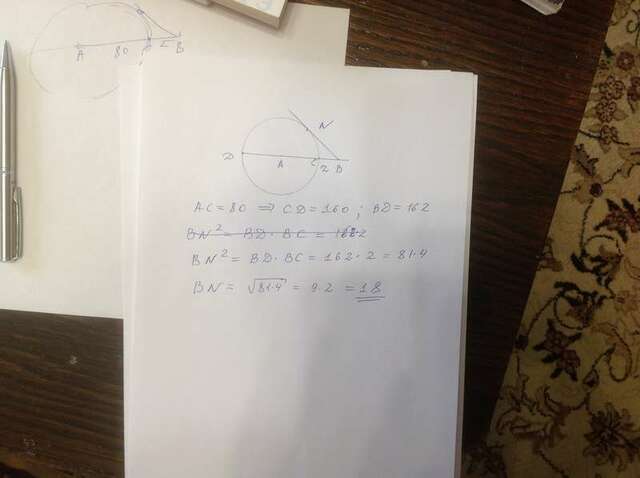 A 80 C 2 B
N
D A C 2 B
AC = 80 => CD = 160 ; BD = 162
BN² = BD · BC = 162·2
BN² = BD · BC = 162 · 2 = 81·4
BN = √81·4 = 9·2 = 18